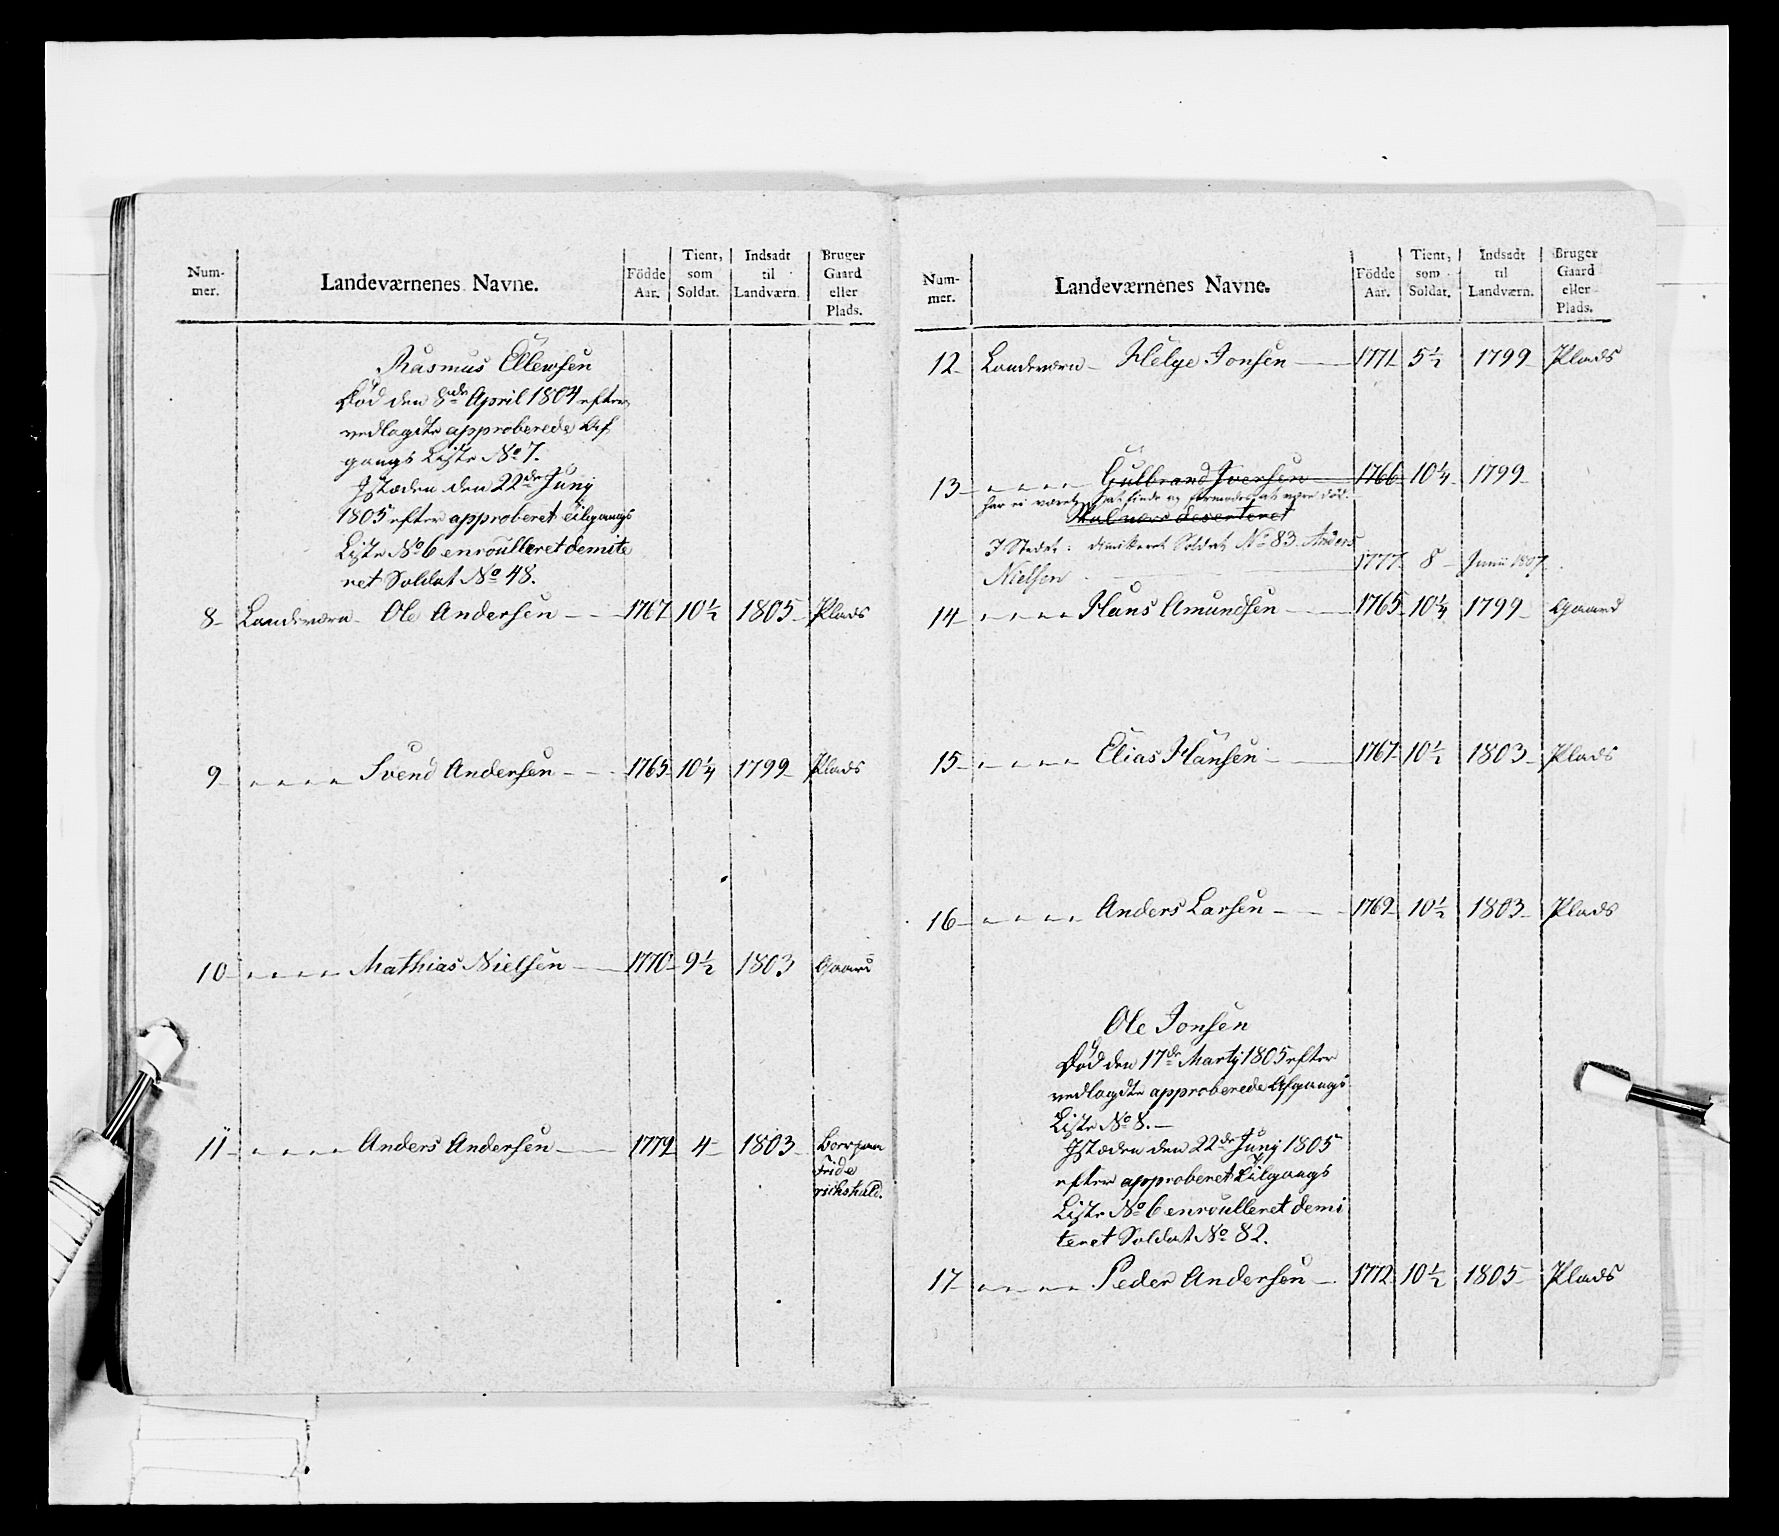 Num-
mer.
Landeværnenes Navne.
Födde
Aar.
Tient,
som
Soldat.
Indsadt
til
Landværn.
Bruger
Gaard
eller
Plads.
Rasmus Ellewsen
Död den 8de April 1804 efter
vedlagdte approberede Af
gangs Liste No 7.
Istæden den 22de Junj
1805 efter approberet tilgangs
Liste No 6 enroulleret demite
ret Soldat No 48.
8 Landeværn Ole Andersen 1767 10½ 1805 Plads
9 " " " " Svend Andersen 1765 10¼ 1799 Plads
10 " " " " Mathias Nielsen 1770 9½ 1803 Gaard
11 " " " " Anders Andersen 1779 4 1803 Borr paa
Fride
richshald.
Num-
mer.
Landeværnenes Navne.
Födde
Aar.
Tient,
som
Soldat.
Indsadt
til
Landværn.
Bruger
Gaard
eller
Plads.
12 Landeværn Helge Jonsen 1771 5½ 1799 Plads
13 " " " " Gulbrand Iversen 1766 10¼ 1799
har ei været at finde og formodes at være död.
Skal være deserteret
I Stedet: dimitteret Soldat No 83. Anders
Nielsen 1777 8 Junii 1807
14 " " " " Hans Amundsen 1765 10¼ 1799 Gaard
15 " " " " Elias Hansen 1767 10½ 1803 Plads
16 " " " " Anders Larsen 1769 10½ 1803 Plads
Ole Jonsen
Död den 17de Martj 1805 efter
vedlagdte approberede Afgangs
Liste No 8.
Istæden den 22de Junj 1805
efter approberet Tilgangs
Liste No 6 enroulleret demi
teret Soldat No 82.
17 " " " " Peder Andersen 1772 10½ 1805 Plads